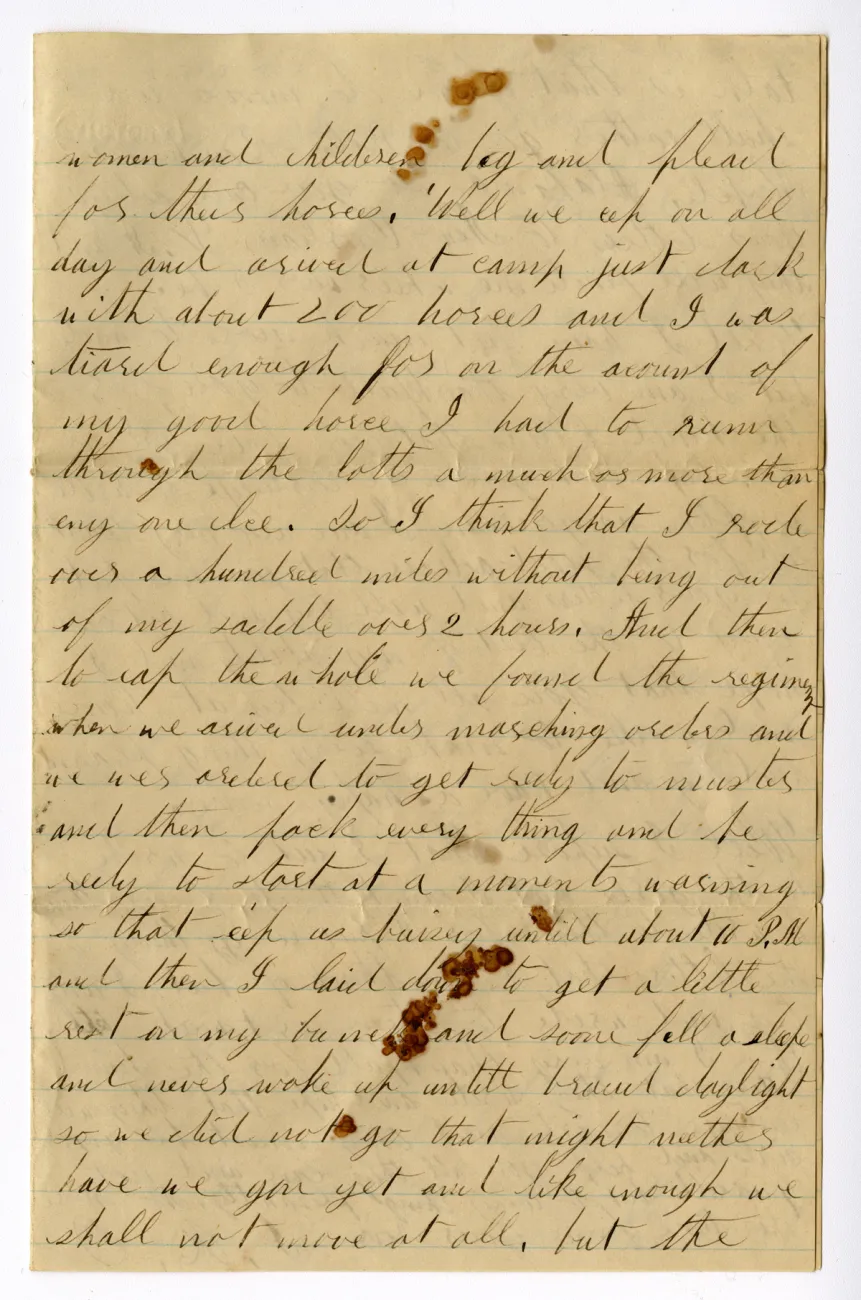 women and children beg and plead
for their horces. Well we cep on all
day and arived at camp just dark
with about 200 horces and I was
tiard enough for on the acount of
my good horce I had to runn
through the lotts a much or more than
eny one elce. So I think that I rode
over a hundred miles without being out
of my saddle over 2 hours. And then
to cap the whole we found the regiment
when we arived under marching orders and
we wer ordered to get redy to muster
and then pack every thing and be
redy to start at a moments warning
so that cep us buisey untill about 11 P.M
and then I laid down to get a little
rest on my bunk and soone fell a sleepe
and never woke up untill braud daylight
so we did not go that night nether
have we gon yet and like enough we
shall not move at all, but the